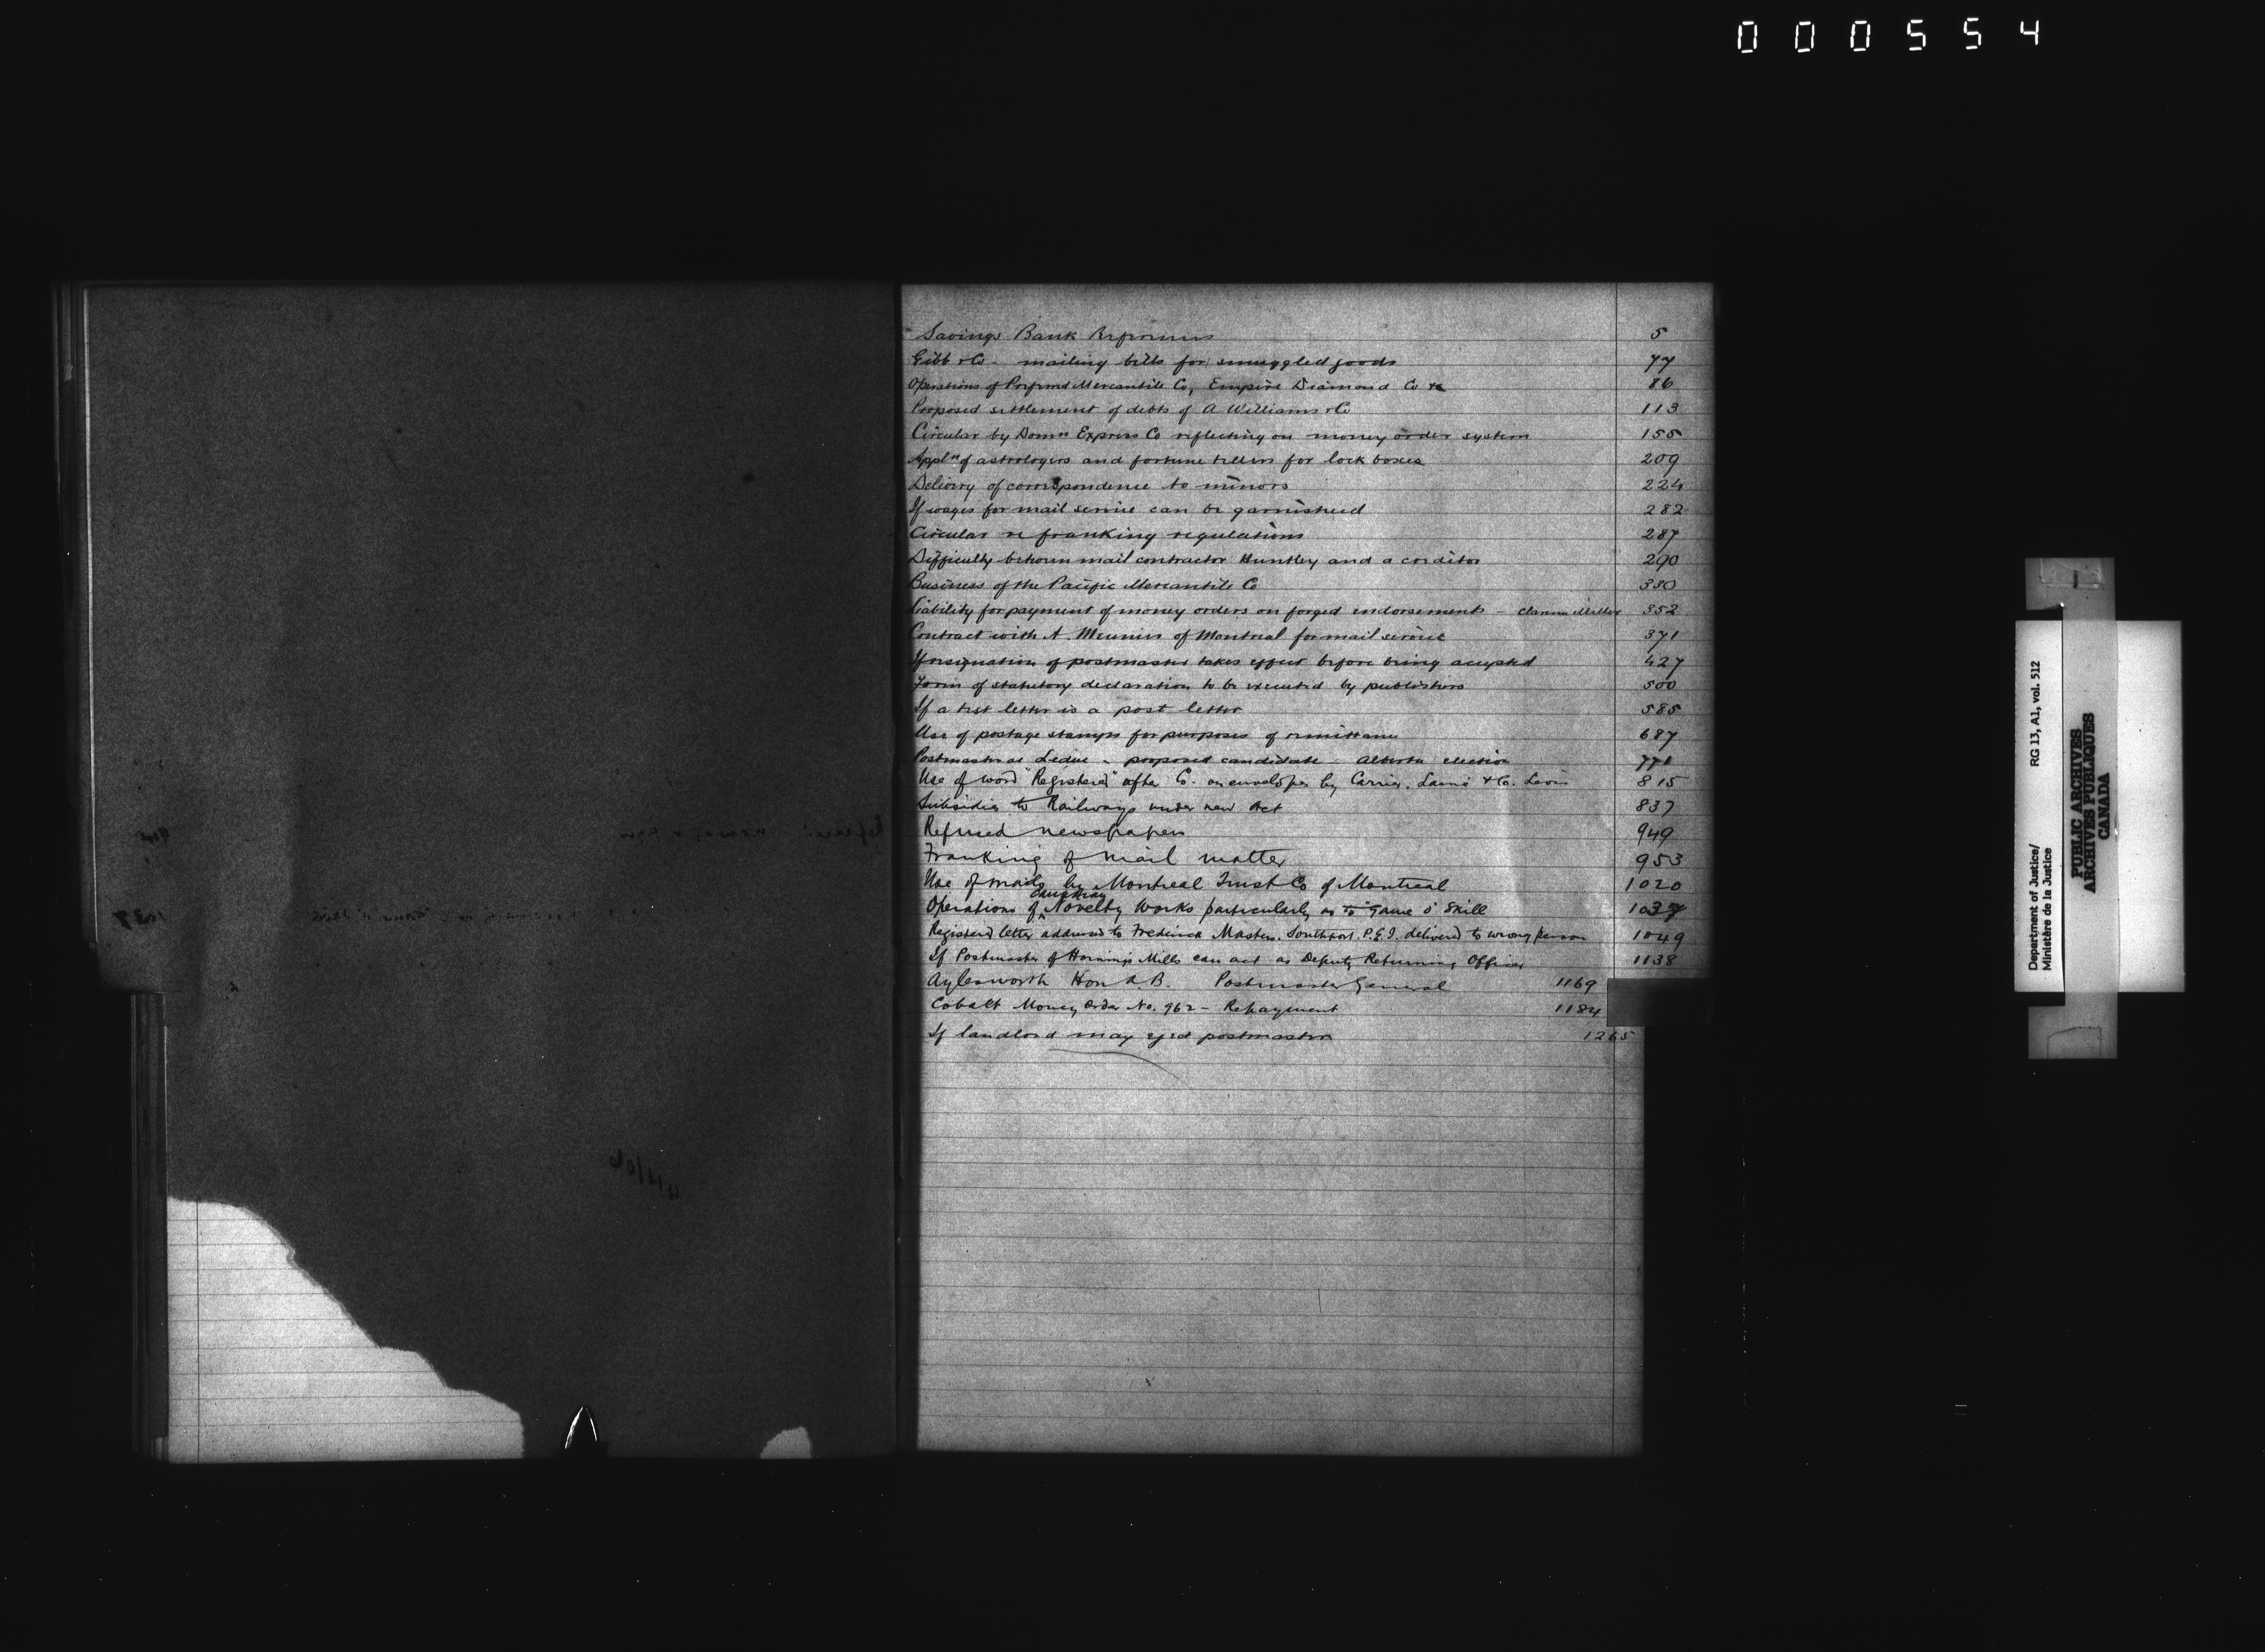 000554
Savings Bank 5
Gibb & Co - mailing bills for smuggled goods 77
Operations of Preferred Mercantile Co, Empire Diamond Co &c 86
Proposed settlement of debts of A Williams & Co 113
Circular by Domn Express Co reflecting on money order system 155
Appln of astrologers and fortune tellers for lock boxes 209
Delivery of correspondence to minors 224
If wages for mail service can be garnisheed 282
Circular re franking regulations 287
Difficulty between mail contractor Huntley and a creditor 290
Business of the Pacific Mercantile Co 330
Liability for payment of money orders on forged endorsements - Miller 352
Contract with A. Meunier of Montreal for mail service 371
If resignation of postmaster takes effect before being accepted 427
Form of statutory declaration to be executed by publishers 500
If a test letter is a post letter 585
Use of postage stamps for purposes of remittance 687
Postmaster at Leduc - proposed candidate - Alberta election 771
Use of word "Registered" after Co. on envelopes by Carrier, Lainé & Co. Levis 815
Subsidies to Railways under new Act 837
Refused newspapers 949
Franking of mail matter 953
Use of mails by Montreal Trust Co of Montreal 1020
Operations of Novelty Works particularly as to "Game o' Skill 1037
Registered letter addressed to Frederick Masters, Southport, P.E.I. delivered to wrong person 1049
If Postmaster of Hornings Mills can act as Deputy Returning Officer 1138
Aylesworth Hon A.B. Postmaster General 1169
Cobalt Money Order No. 962 - Repayment 1184
If landlord may eject postmaster 1265
Department of Justice/ RG 13, A1, vol. 512
Ministère de la Justice
PUBLIC ARCHIVES
ARCHIVES PUBLIQUES
CANADA